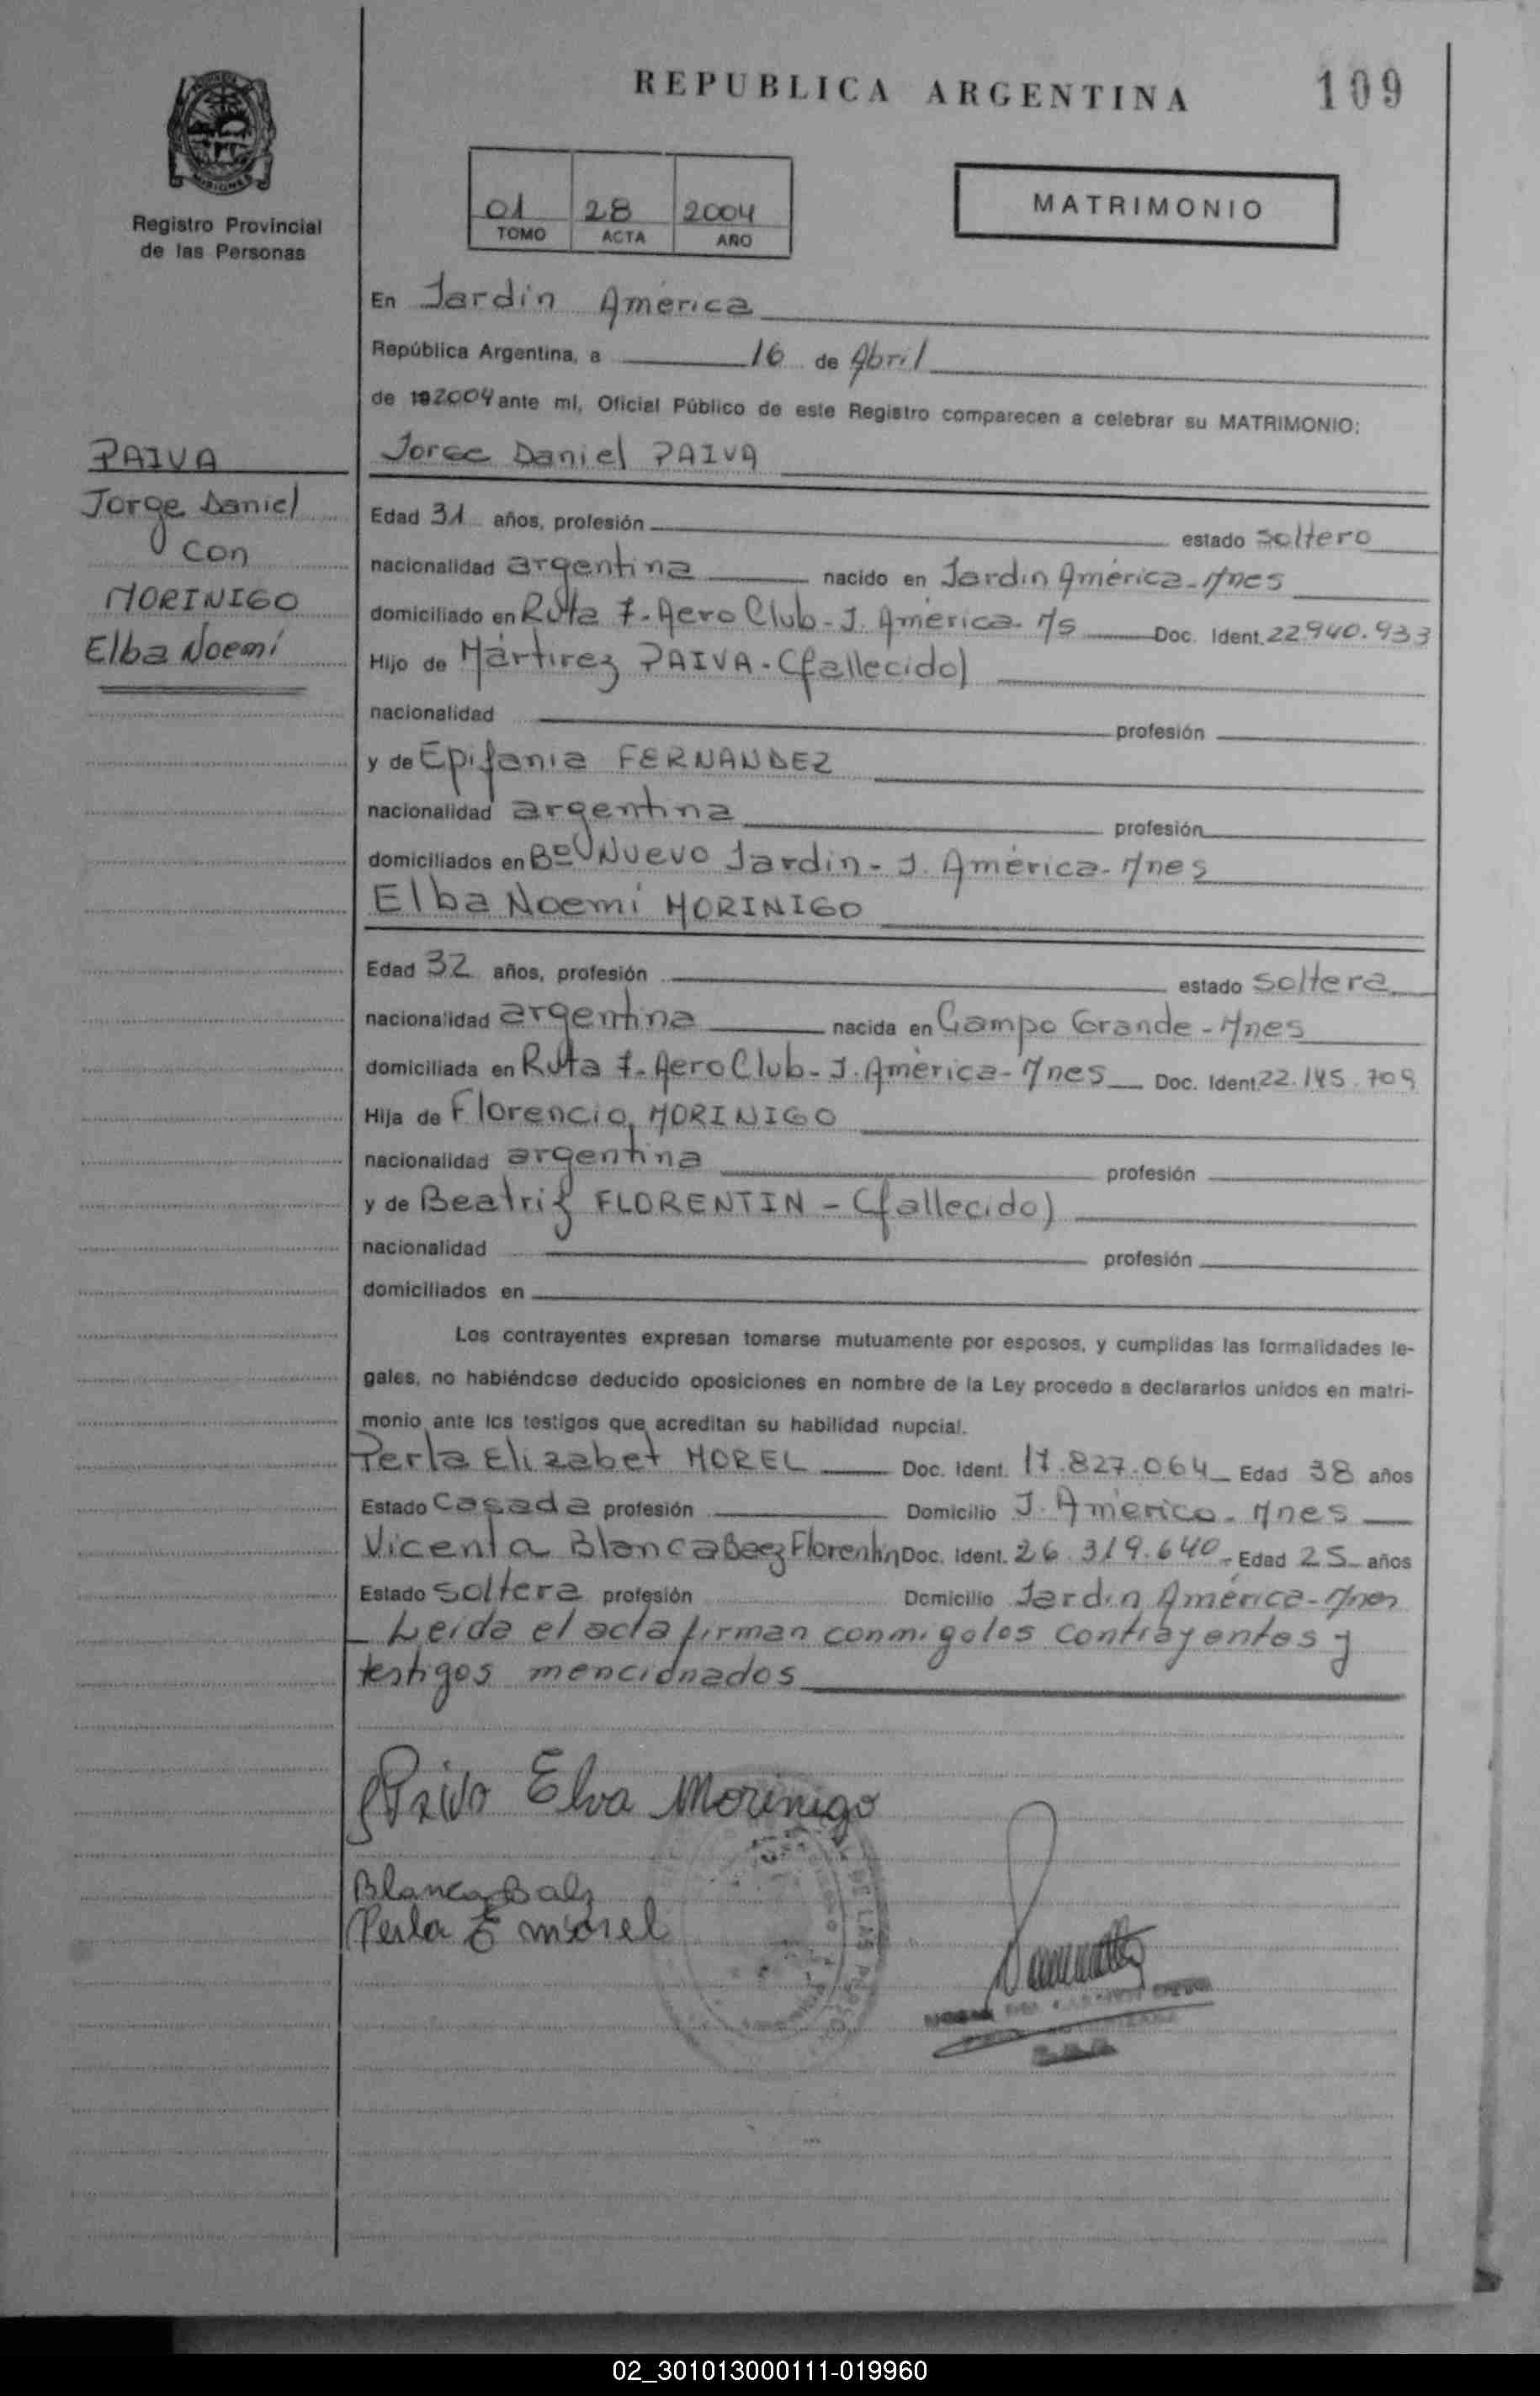 REPUBLICA ARGENTINA
109
MISIONES
Registro Provincial
de las Personas
01 28 2004
TOMO ACTA AÑO
MATRIMONIO
En Jardín América
República Argentina, a 16 de Abril
de 192004 ante mí, Oficial Público de este Registro comparecen a celebrar su MATRIMONIO:
PAIVA
Jorge Daniel
con
MORINIGO
Elba Noemí
Jorge Daniel PAIVA
Edad 31 años, profesión estado soltero
nacionalidad argentina nacido en Jardín América-Mnes
domiciliado en Ruta 7-Aero Club-J. América-Ms Doc. Ident. 22.940.933
Hijo de Mártirez PAIVA-(fallecido)
nacionalidad profesión
y de Epifania FERNANDEZ
nacionalidad argentina profesión
domiciliados en Bº Nuevo Jardín-J. América-Mnes
Elba Noemí MORINIGO
Edad 32 años, profesión estado soltera
nacionalidad argentina nacida en Campo Grande-Mnes
domiciliada en Ruta 7-Aero Club-J. América-Mnes Doc. Ident. 22.145.709
Hija de Florencio MORINIGO
nacionalidad argentina profesión
y de Beatriz FLORENTIN-(fallecido)
nacionalidad profesión
domiciliados en
Los contrayentes expresan tomarse mutuamente por esposos, y cumplidas las formalidades le-
gales, no habiéndose deducido oposiciones en nombre de la Ley procedo a declararlos unidos en matri-
monio ante los testigos que acreditan su habilidad nupcial.
Perla Elizabet MOREL Doc. Ident. 17.827.064 Edad 38 años
Estado Casada profesión Domicilio J. América-Mnes
Vicenta Blanca Baez Florentín Doc. Ident. 26.319.640 Edad 25 años
Estado soltera profesión Domicilio Jardín América-Mnes
Leída el acta firman conmigo los contrayentes y
testigos mencionados
Paiva Elva Morinigo
Blanca Baez
Perla E Morel
DE LAS
02_301013000111-019960